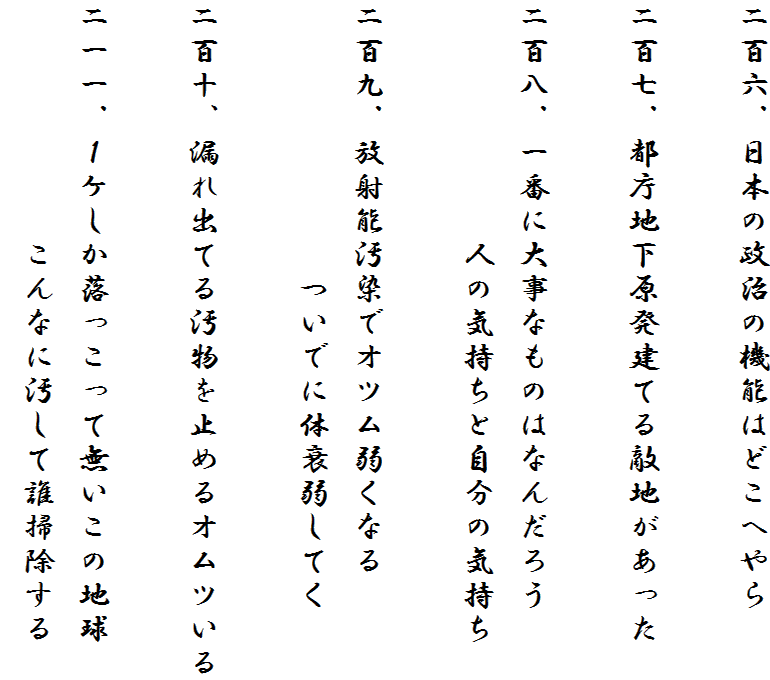 二百六、日本の政治の機能はどこへやら
二百七、都庁地下原発建てる敵地があった
二百八、一番に大事なものはなんだろう
人の気持ちと自分の気持ち
二百九、放射能汚染でオツム弱くなる
ついでに体衰弱してく
二百十、漏れ出てる汚物を止めるオムツいる
二一一、1ケしか落っこって無いこの地球
こんなに汚して誰掃除する